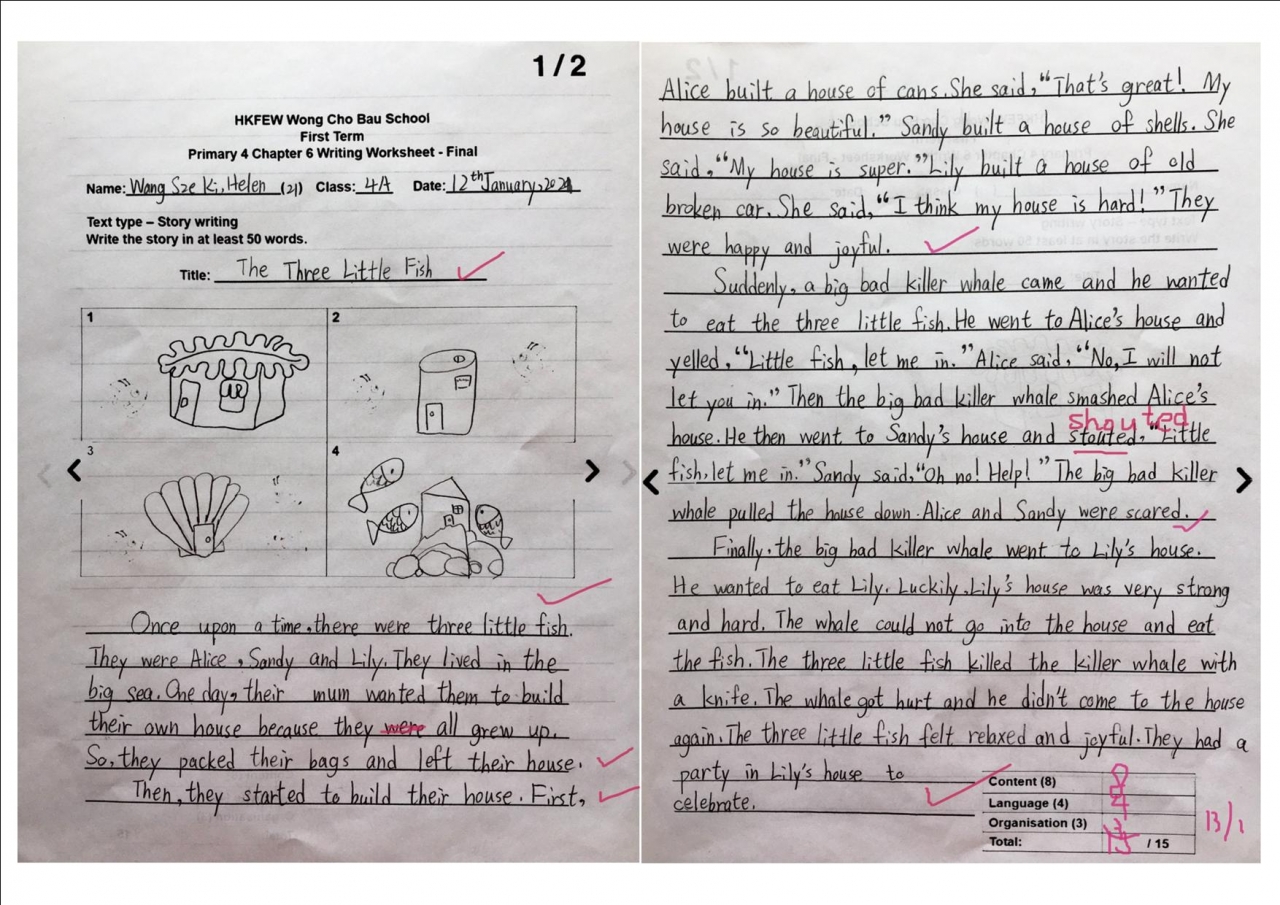 1/2
HKFEW Wong Cho Bau School
First Term
Primary 4 Chapter 6 Writing Worksheet - Final
Name: Wong Sze Ki, Helen (21) Class: 4A Date: 12th January, 2021
Text type – Story writing
Write the story in at least 50 words.
Title: The Three Little Fish
1
2
3
4
Once upon a time, there were three little fish.
They were Alice, Sandy and Lily. They lived in the
big sea. One day, their mum wanted them to build
their own house because they were all grew up.
So, they packed their bags and left their house.
Then, they started to build their house. First,
Alice built a house of cans. She said, "That's great! My
house is so beautiful." Sandy built a house of shells. She
said, "My house is super." Lily built a house of old
broken car. She said, "I think my house is hard!" They
were happy and joyful.
Suddenly, a big bad killer whale came and he wanted
to eat the three little fish. He went to Alice's house and
yelled, "Little fish, let me in." Alice said, "No, I will not
let you in." Then the big bad killer whale smashed Alice's
shouted
house. He then went to Sandy's house and stouted, "Little
fish, let me in." Sandy said, "Oh no! Help!" The big bad killer
whale pulled the house down. Alice and Sandy were scared.
Finally, the big bad killer whale went to Lily's house.
He wanted to eat Lily. Luckily, Lily's house was very strong
and hard. The whale could not go into the house and eat
the fish. The three little fish killed the killer whale with
a knife. The whale got hurt and he didn't come to the house
again. The three little fish felt relaxed and joyful. They had a
party in Lily's house to
celebrate.
Content (8) 8
Language (4) 4
Organisation (3) 3
Total: 15 / 15
13/1